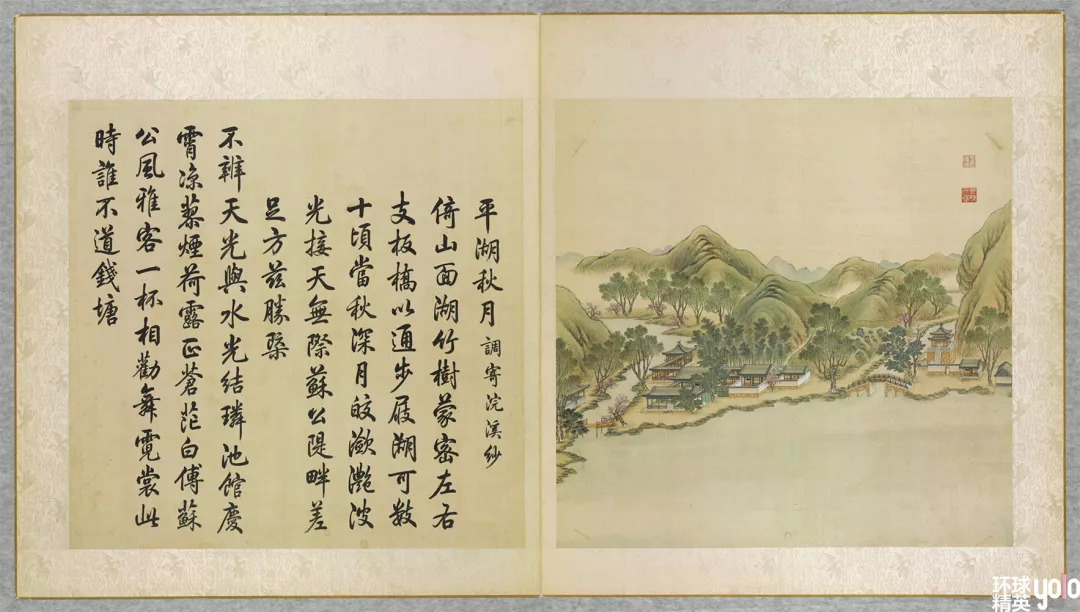 平湖秋月 調寄浣溪紗
倚山面湖竹樹蒙密左右
支板橋以通步屐湖可數
十頃當秋深月皎瀲灩波
光接天無際蘇公隄畔差
足方茲勝槩
不辨天光與水光結璘池館慶
霄涼蓼煙荷露正蒼茫白傅蘇
公風雅客一杯相勸舞霓裳此
時誰不道錢塘
环球
精英
yolo